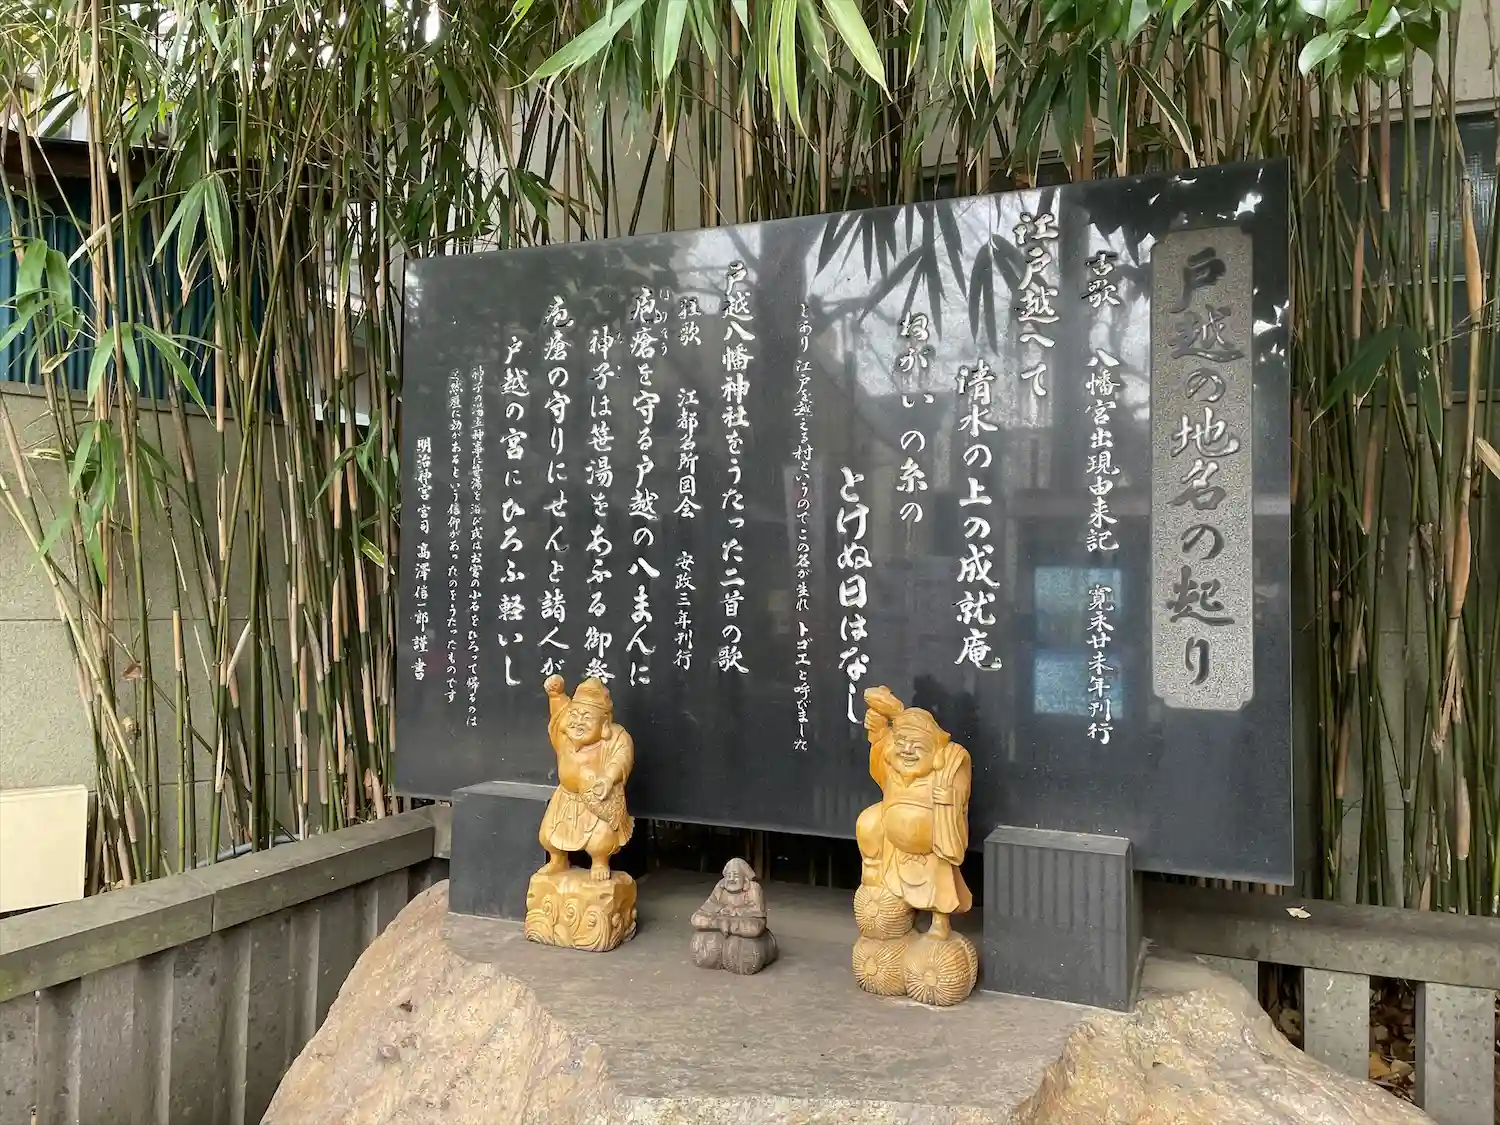 戸越の地名の起り
古歌 八幡宮出現由来記 寛永廿未年刊行
江戸越へて
清水の上の成就庵
ねがいの糸の
とけぬ日はなし
とあり 江戸を越える村というのでこの名が生れ トゴエと呼びました
戸越八幡神社をうたった二首の歌
狂歌 江都名所図会 安政三年刊行
疱瘡を守る戸越の八まんに
ほうそう
神子は笹湯をあふる御祭
みこ
疱瘡の守りにせんと諸人が
戸越の宮にひろふ軽いし
神子の湯立神事に笹湯を浴び或はお宮の小石をひろって帰るのは
天然痘に効があるという信仰があったのをうたったものです
明治神宮 宮司 高澤信一郎 謹書